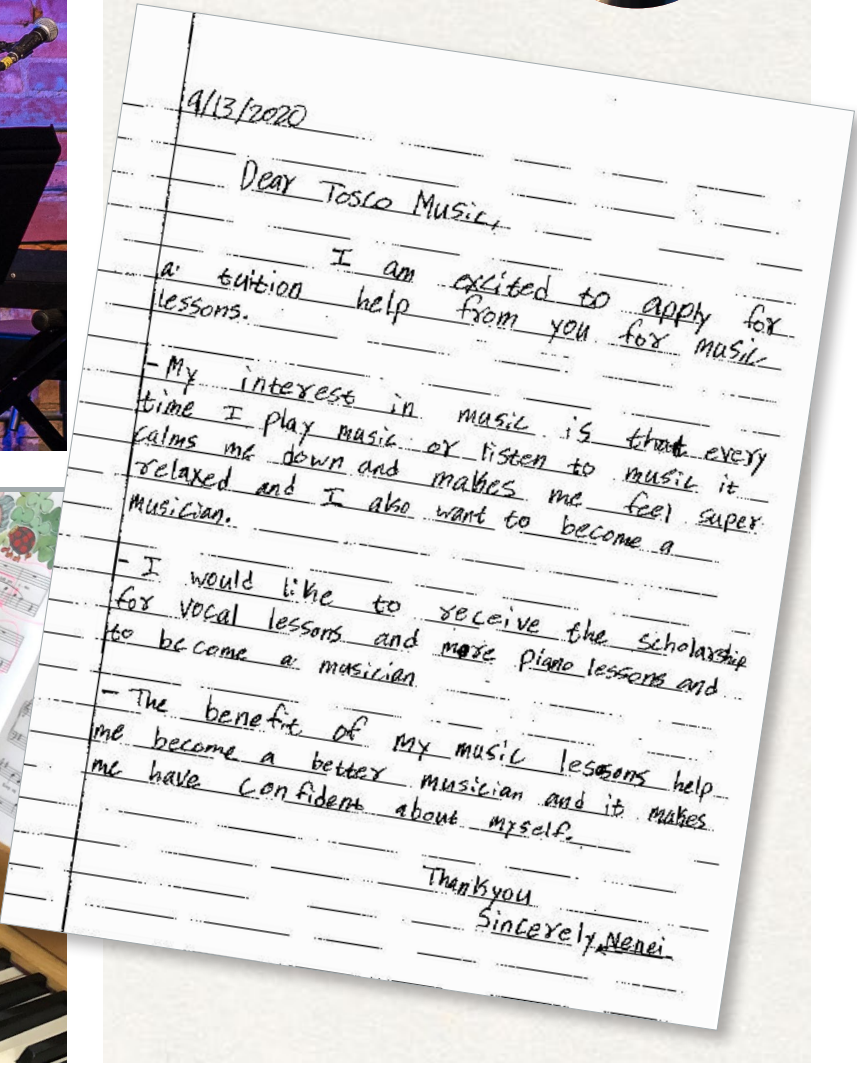 9/13/2020
Dear Tosco Music,
I am excited to apply for
a tuition help from you for music
lessons.
- My interest in music is that every
time I play music or listen to music it
calms me down and makes me feel super
relaxed and I also want to become a
musician.
- I would like to receive the scholarship
for vocal lessons and more piano lessons and
to become a musician
- The benefit of my music lessons help
me become a better musician and it makes
me have confident about myself.
Thank you
Sincerely, Nenei